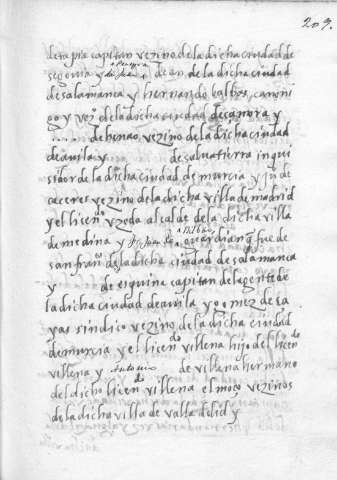 209.
detapia capitan vezino dela dicha ciudad de
segouia y de Juan dean dela dicha ciudad
de salamanca y hernando balbas, canoni
go y vezº dela dicha ciudad de çamora y
..... de henao vezino dela dicha ciudad
de auila y de saluatierra inqui
sidor dela dicha ciudad de murcia y juº de
caceres vezino dela dicha villa de madrid
y el licenº vzeda alcalde dela dicha villa
de medina y fr. Juan de bilbao guardian q̃ fue de
san franº dela dicha ciudad de salamanca
y de esquina capitan dela gente de
la dicha ciudad de auila y gomez de la
yas sindico vezino dela dicha ciudad
de murcia y el licendº villena hijo del licendº
villena y Antonio de villena hermano
del dicho licendº villena el moço vezinos
dela dicha villa de valladelid y